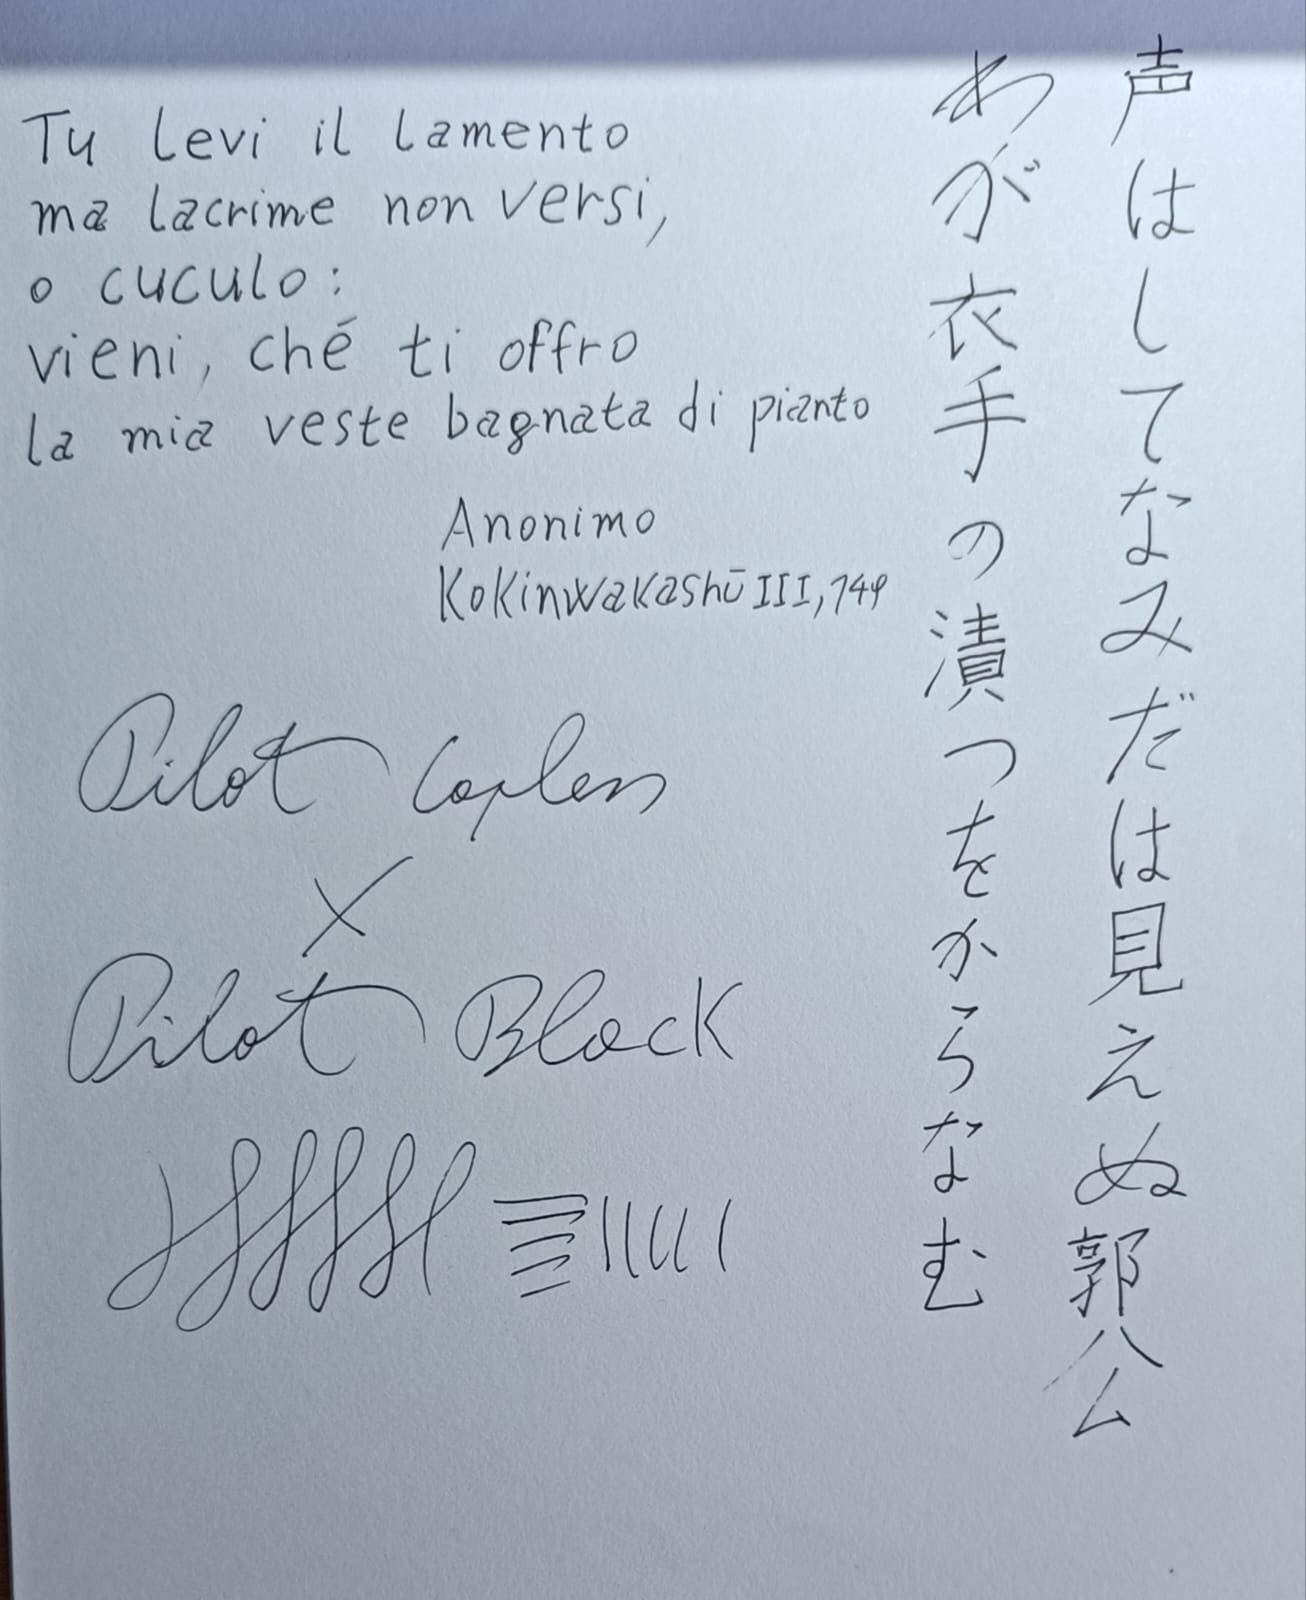 Tu levi il lamento
ma lacrime non versi,
o cuculo:
vieni, ché ti offro
la mia veste bagnata di pianto
Anonimo
Kokinwakashū III, 149
Pilot Capless
X
Pilot Black
声はしてなみだは見えぬ郭公
わが衣手の漬つをからなむ